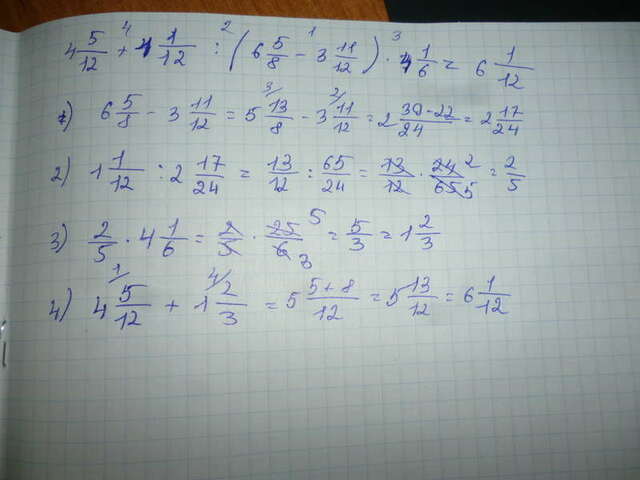 4 5/12 + 1 1/12 : (6 5/8 - 3 11/12) · 4 1/6 = 6 1/12
1) 6 5/8 - 3 11/12 = 5 13/8 - 3 11/12 = 2 (39-22)/24 = 2 17/24
2) 1 1/12 : 2 17/24 = 13/12 : 65/24 = 13/12 · 24/65 = 2/5
3) 2/5 · 4 1/6 = 2/5 · 25/6 = 5/3 = 1 2/3
4) 4 5/12 + 1 2/3 = 5 (5+8)/12 = 5 13/12 = 6 1/12